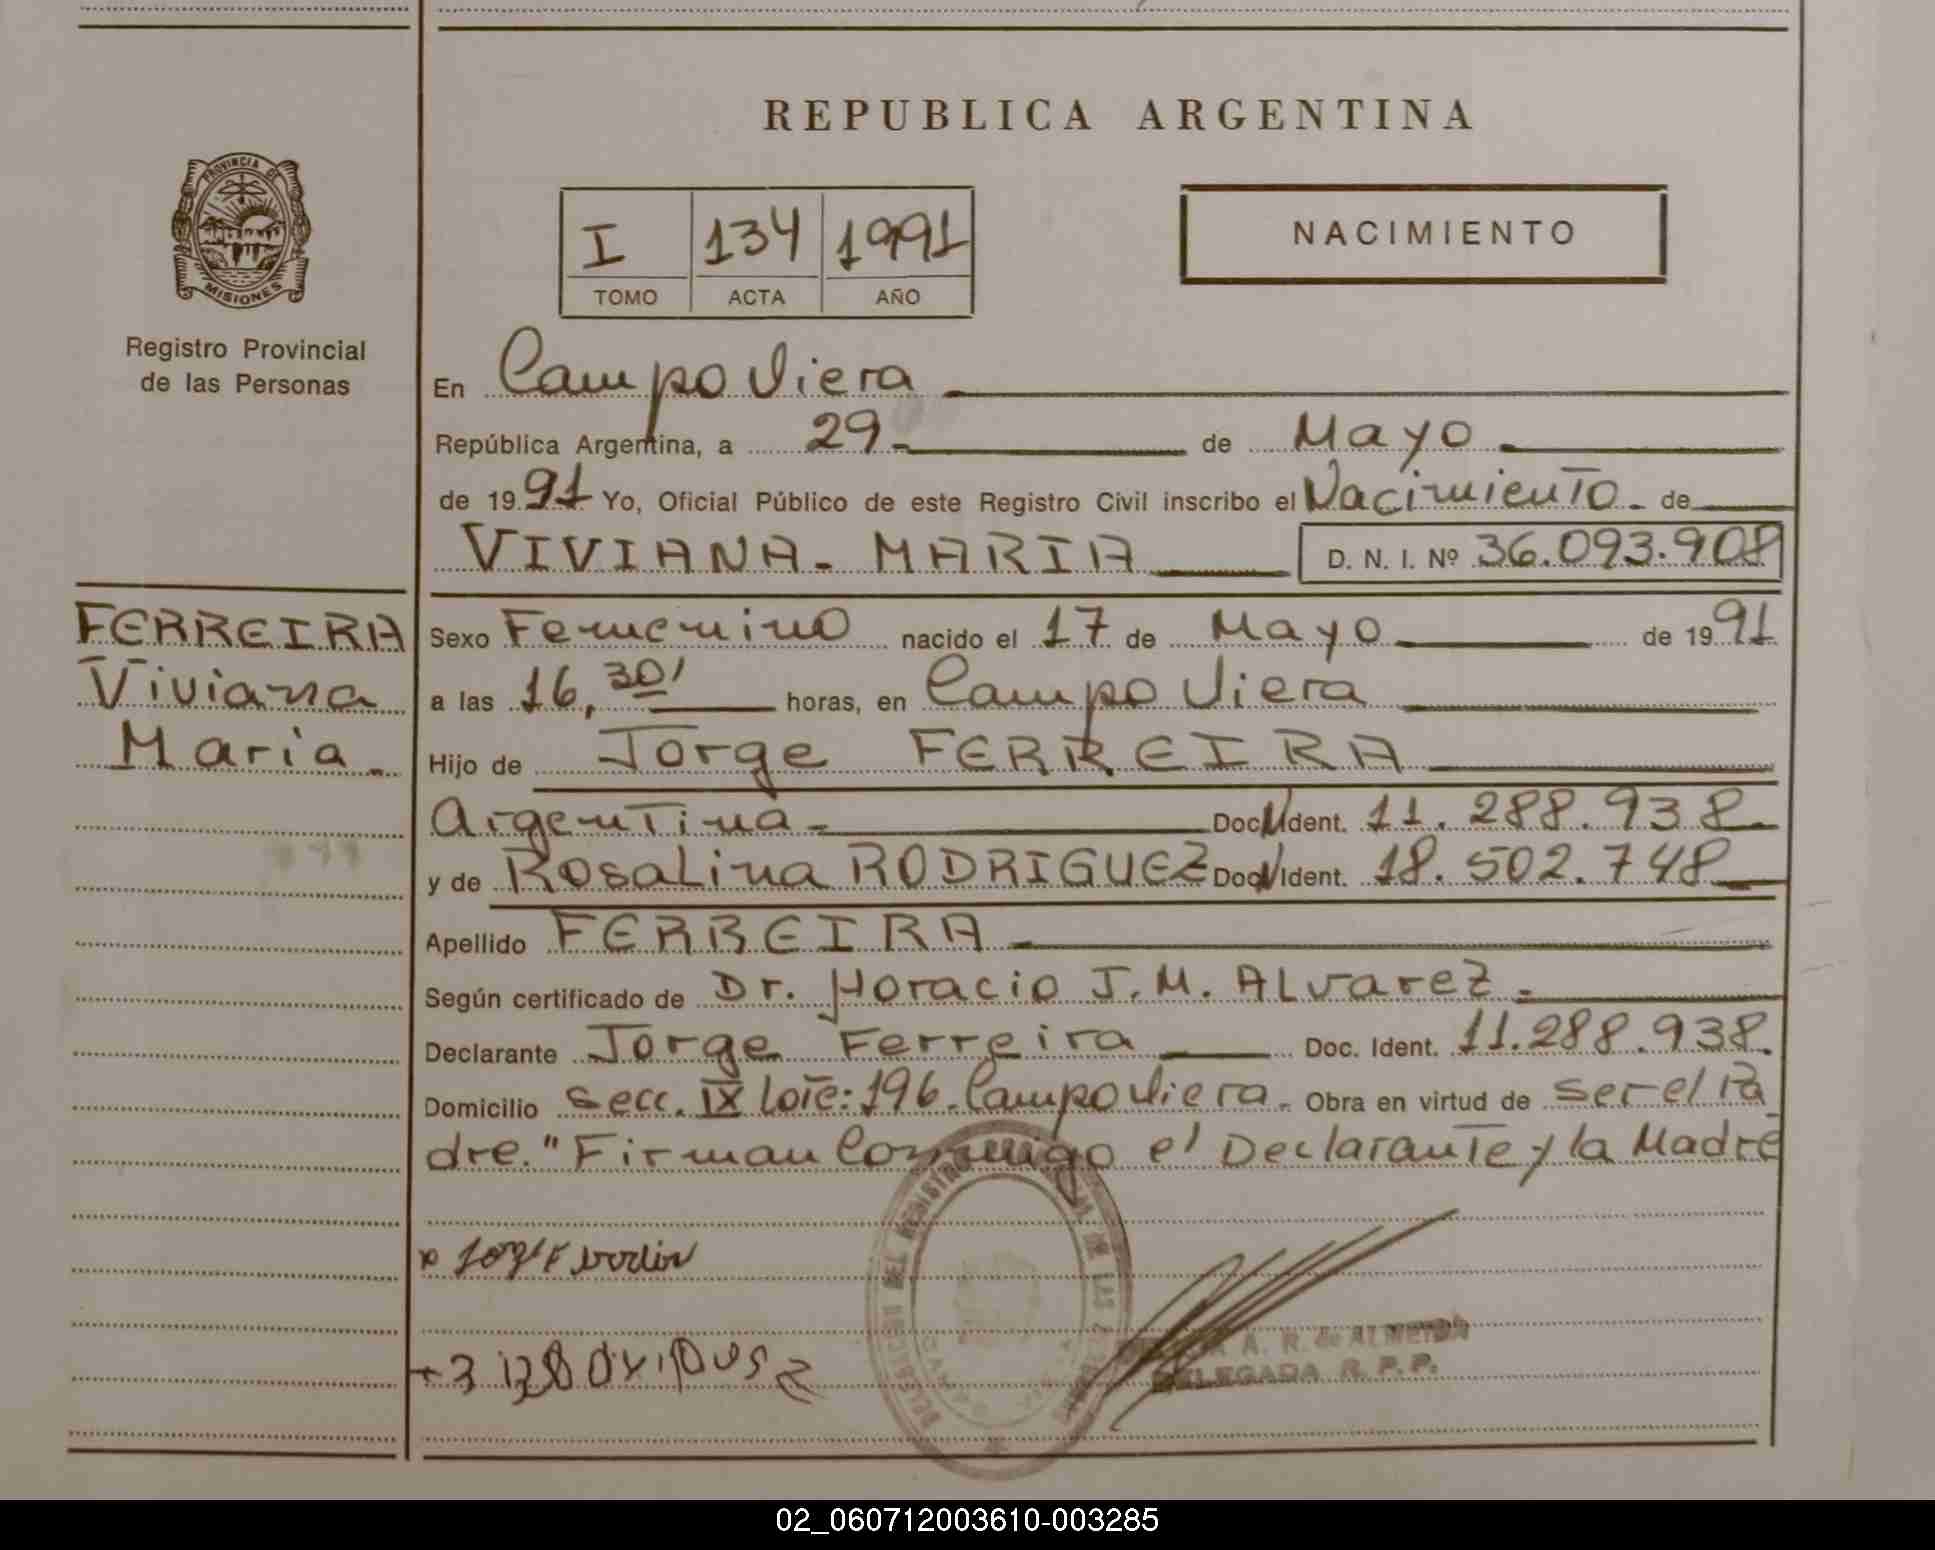 REPUBLICA ARGENTINA
PROVINCIA DE
MISIONES
Registro Provincial
de las Personas
I 134 1991
TOMO ACTA AÑO
NACIMIENTO
En Campo Viera
República Argentina, a 29 de Mayo
de 1991 Yo, Oficial Público de este Registro Civil inscribo el Nacimiento de
VIVIANA MARIA D. N. I. Nº 36.093.908
FERREIRA
Viviana
Maria
Sexo Femenino nacido el 17 de Mayo de 1991
a las 16,30' horas, en Campo Viera
Hijo de Jorge FERREIRA
Argentina Doc. Ident. 11.288.938
y de Rosalina RODRIGUEZ Doc. Ident. 18.502.748
Apellido FERREIRA
Según certificado de Dr. Horacio J. M. Alvarez
Declarante Jorge Ferreira Doc. Ident. 11.288.938
Domicilio Secc. IX Lote: 196. Campo Viera. Obra en virtud de ser el Pa
dre. "Firman Conmigo el Declarante y la Madre
DEL REGISTRO DE LAS
A. R. de ALMEIDA
DELEGADA R. P. P.
02_060712003610-003285